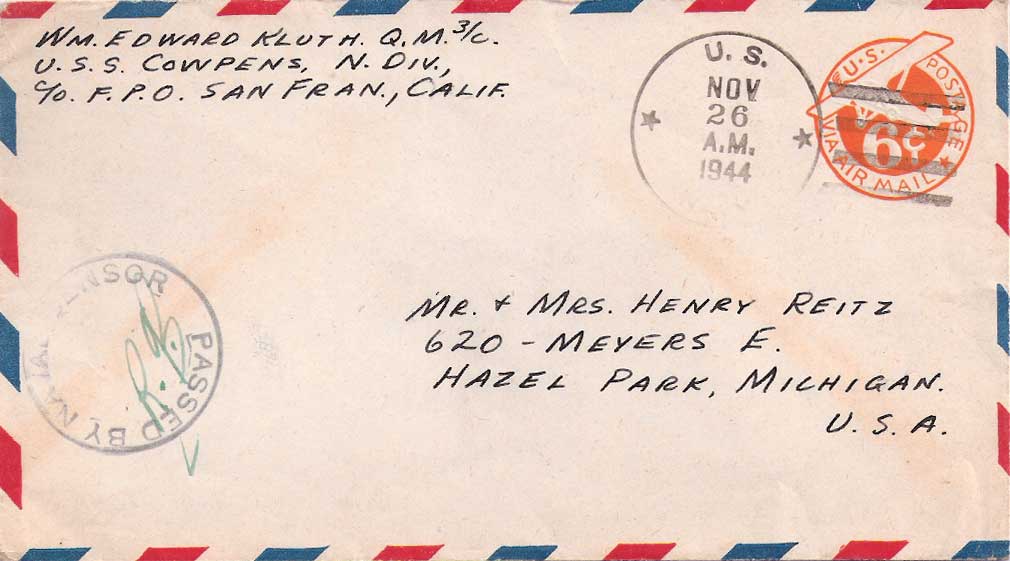 WM. EDWARD KLUTH. Q.M. 3/c.
U.S.S. COWPENS, N. DIV.,
c/o. F.P.O. SAN FRAN., CALIF.
U. S.
NOV
26
A.M.
1944
U.S. POSTAGE
6¢
VIA AIR MAIL
MR. & MRS. HENRY REITZ
620 - MEYERS E.
HAZEL PARK, MICHIGAN.
U. S. A.
PASSED BY